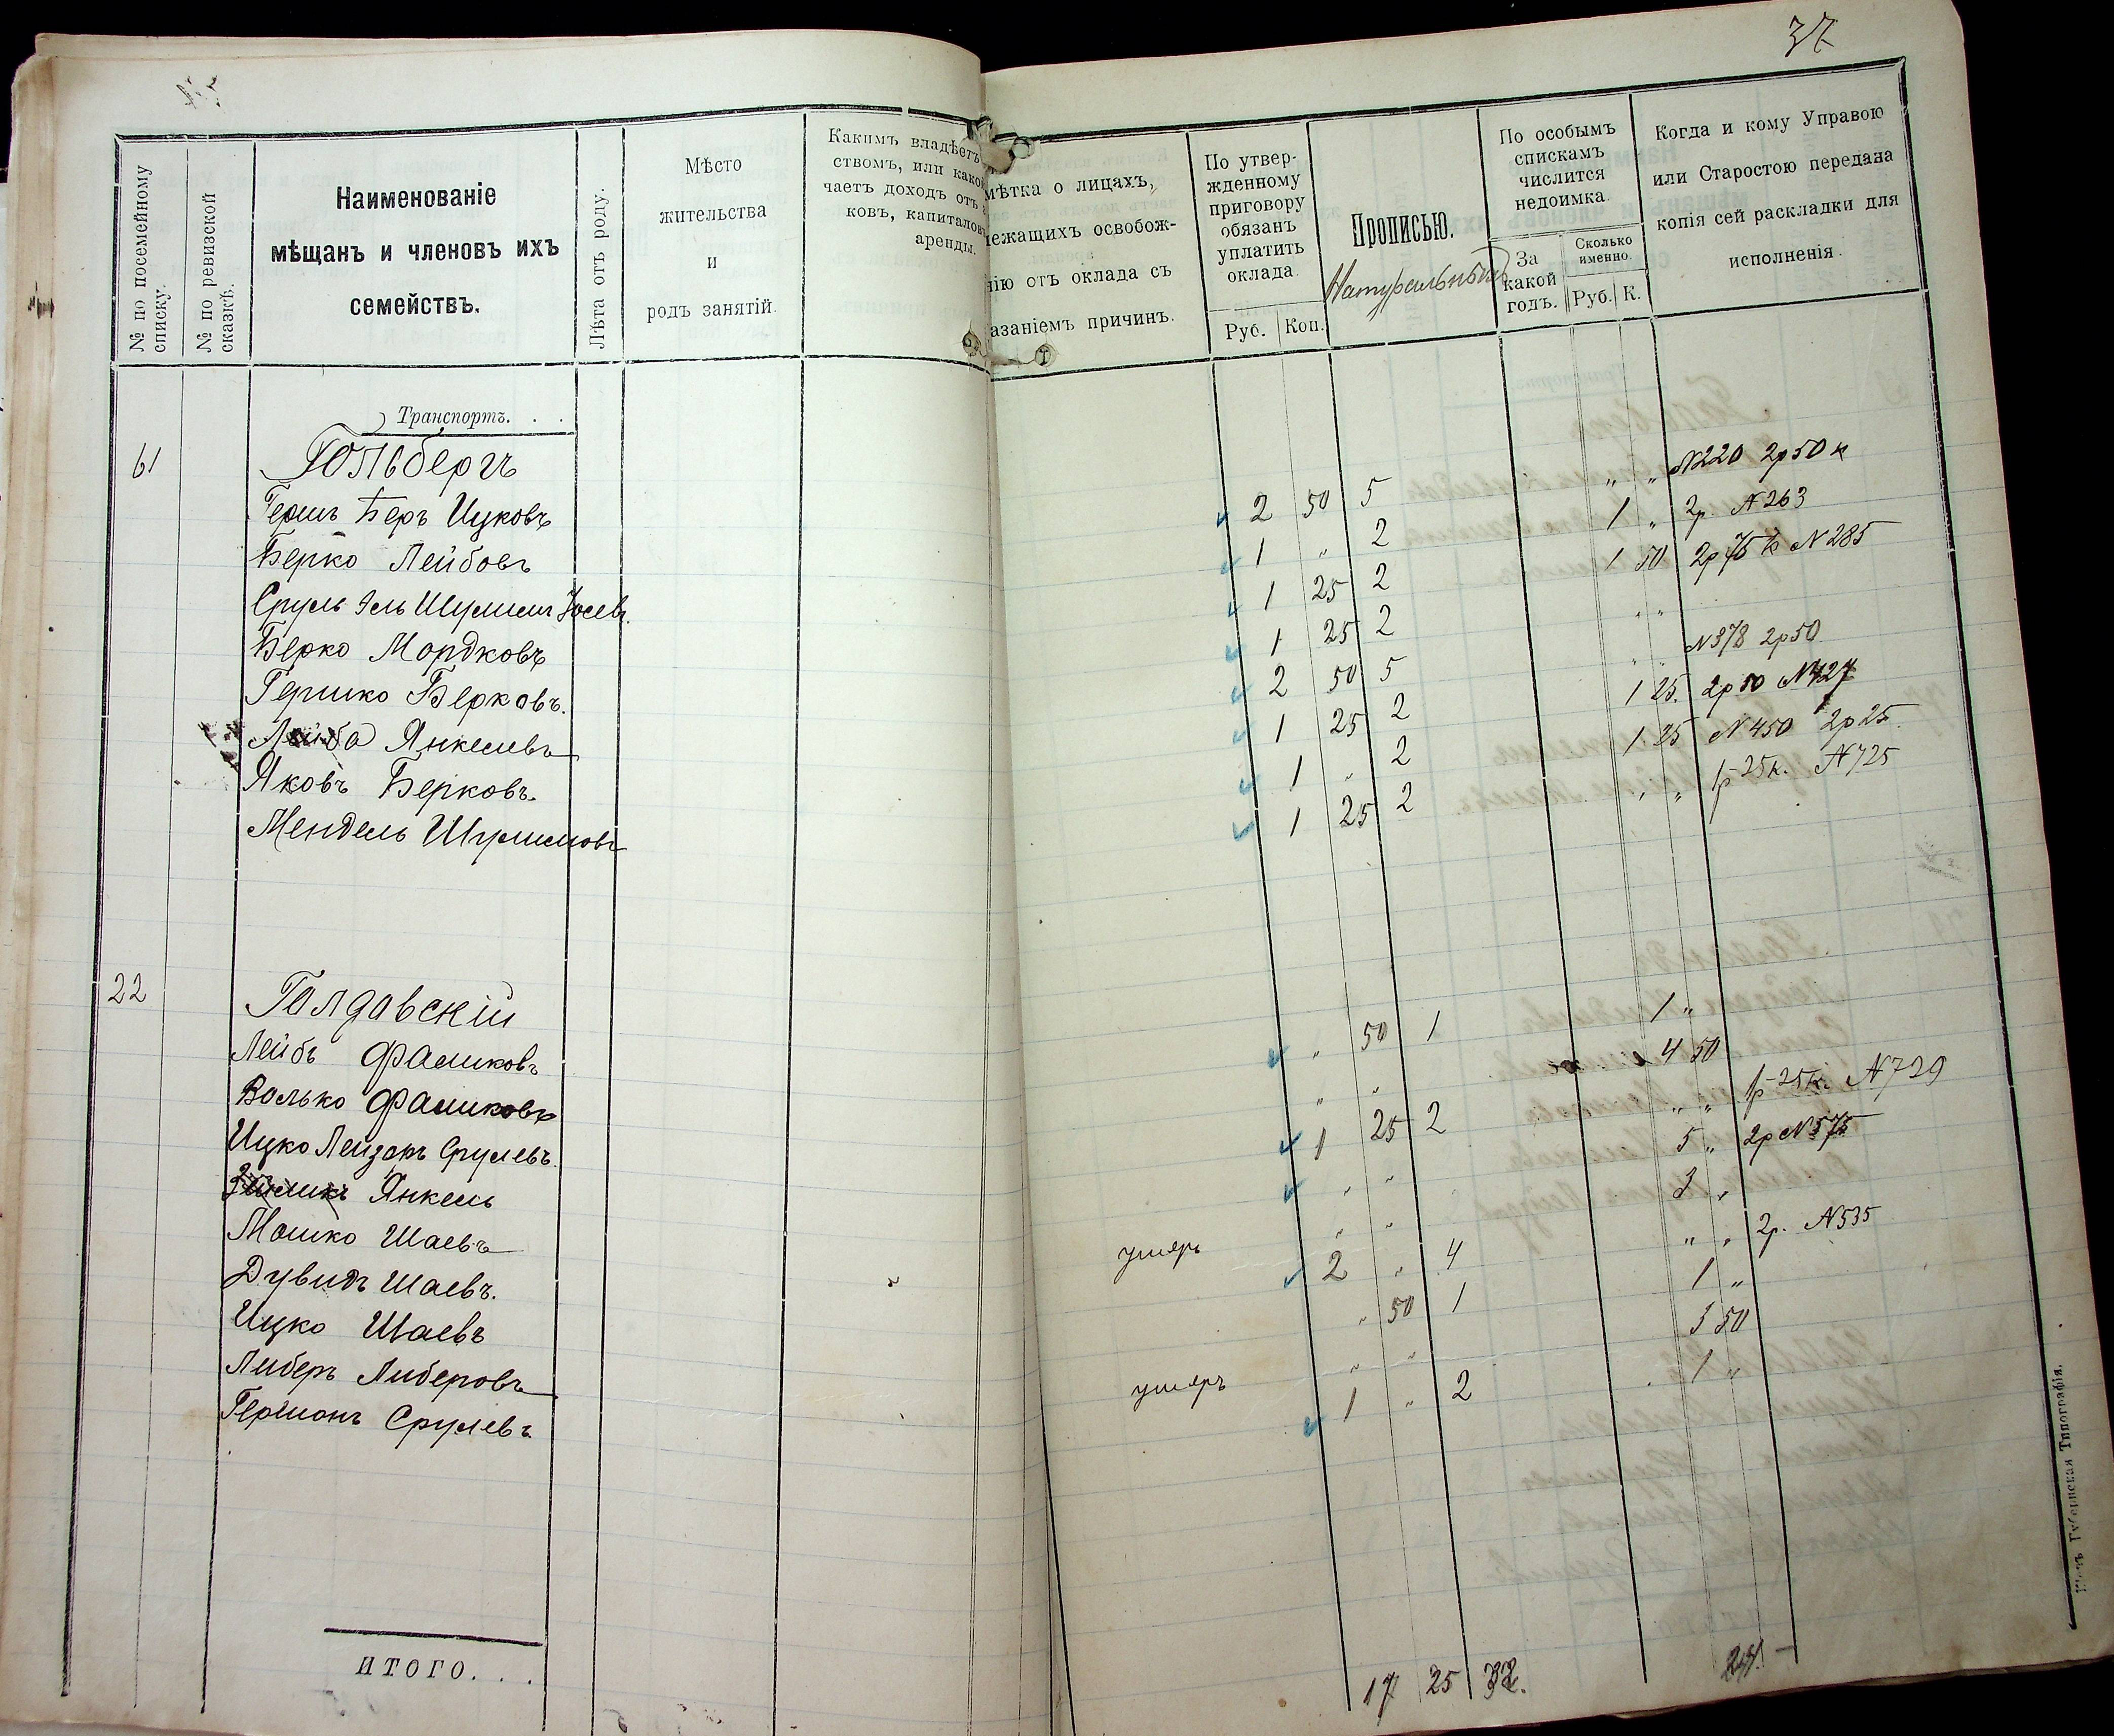 37
№ по посемейному
списку.
№ по ревизской
сказкѣ.
Наименованіе
мѣщанъ и членовъ ихъ
семействъ.
Лѣта отъ роду.
Мѣсто
жительства
и
родъ занятій.
Какимъ владѣетъ
ствомъ, или како
чаетъ доходъ отъ
ковъ, капиталов
аренды.
мѣтка о лицахъ,
лежащихъ освобож-
нію отъ оклада съ
азаніемъ причинъ.
По утвер-
жденному
приговору
обязанъ
уплатить
оклада.
Руб. Коп.
Прописью.
Натуральный
По особымъ
спискамъ
числится
недоимка.
За
какой
годъ.
Сколько
именно.
Руб. К.
Когда и кому Управою
или Старостою передана
копія сей раскладки для
исполненія.
Транспортъ. . .
61 Гольбергъ
Гершъ Беръ Ицковъ 2 50 5 " " N220 2р50к
Берко Лейбовъ 1 " 2 1 " 2р. N263
Сруль Эль Шулимъ Іосев. 1 25 2 1 50 2р75к N285
Берко Мордковъ 1 25 2 " "
Гершко Берковъ. 2 50 5 " " N378 2р50
Лейба Янкелевъ 1 25 2 1 25. 2р50 N427
Яковъ Берковъ. 1 " 2 1 25 N450 2р25.
Мендель Шулимовъ 1 25 2 " " 1р25к. N725
22 Голдовскій
Лейбъ Фаликовъ " 50 1 1 "
Волько Фаликовъ " " 4 50
Ицко Лейзоръ Срулевъ. 1 25 2 " " 1р25к. N729
Янкель " " 5 " 2р N575
Мошко Шаевъ умеръ " " 3 "
Дувидъ Шаевъ. 2 " 4 " " 2р. N535
Ицко Шаевъ " 50 1 1 "
Либеръ Либеровъ умеръ " " 3 50
Гершонъ Срулевъ 1 " 2 1 "
ИТОГО. . . 17 25 32. 24 -
Губернская Типографія.